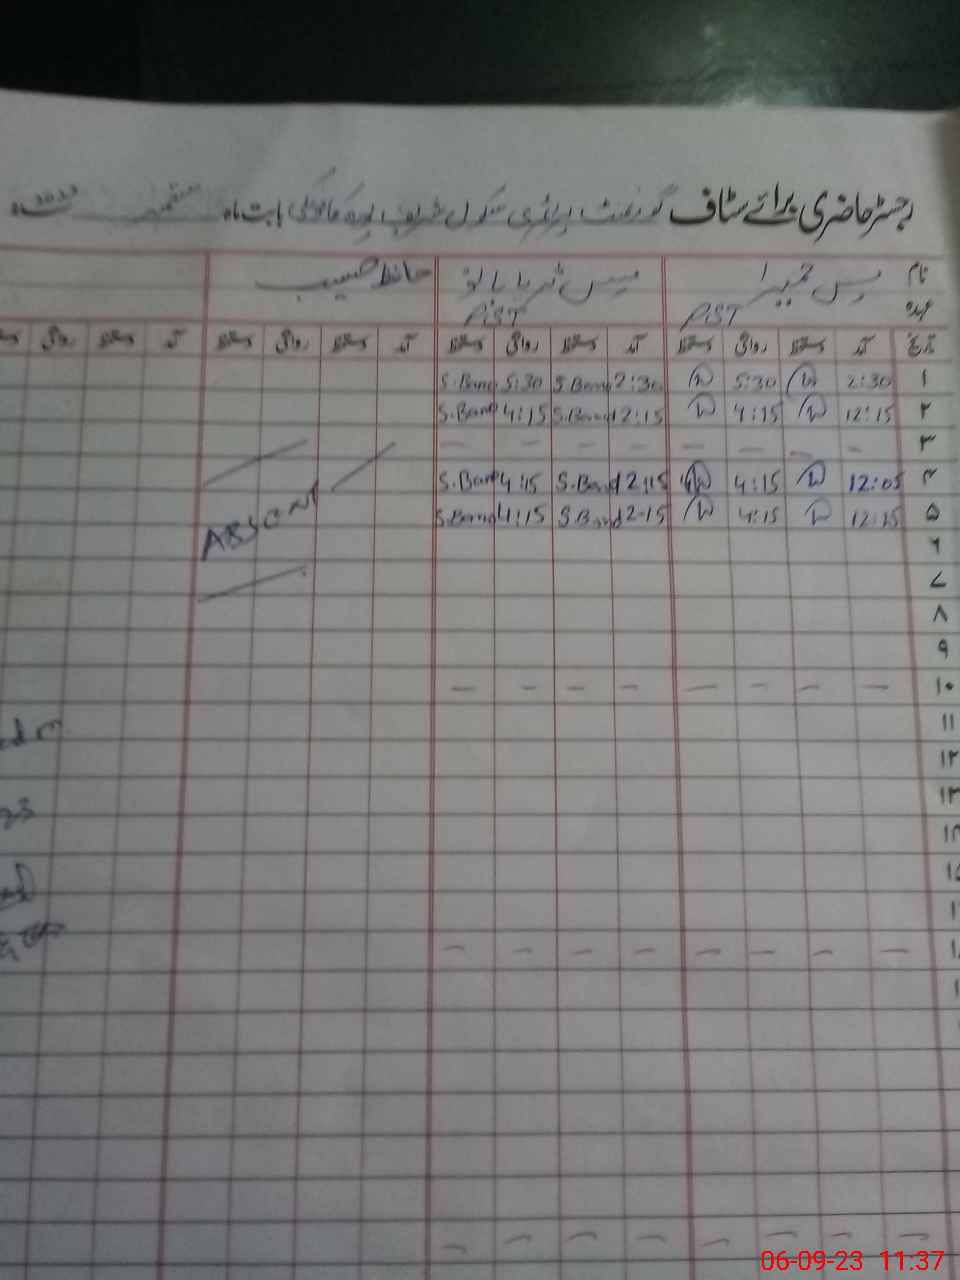 رجسٹر حاضری برائے سٹاف گورنمنٹ پرائمری سکول شریف پورہ بابت ماہ ستمبر 2023ء
نام مس حمیرا مس ثریا بانو حافظ حسیب
عہدہ PST PST
تاریخ آمد دستخط روانگی دستخط آمد دستخط روانگی دستخط آمد دستخط روانگی دستخط آمد دستخط روانگی
۱ 2:30 5:30 2:30 S.Bano 5:30 S.Bano
۲ 12:15 4:15 12:15 S.Bano 4:15 S.Bano
۳ — — — — — — — —
۴ 12:05 4:15 12:15 S.Bano 4:15 S.Bano
۵ 12:15 4:15 12-15 S.Bano 4:15 S.Bano
ABSENT
۶
۷
۸
۹
۱۰ — — — — — — — —
۱۱
۱۲
۱۳
06-09-23 11:37